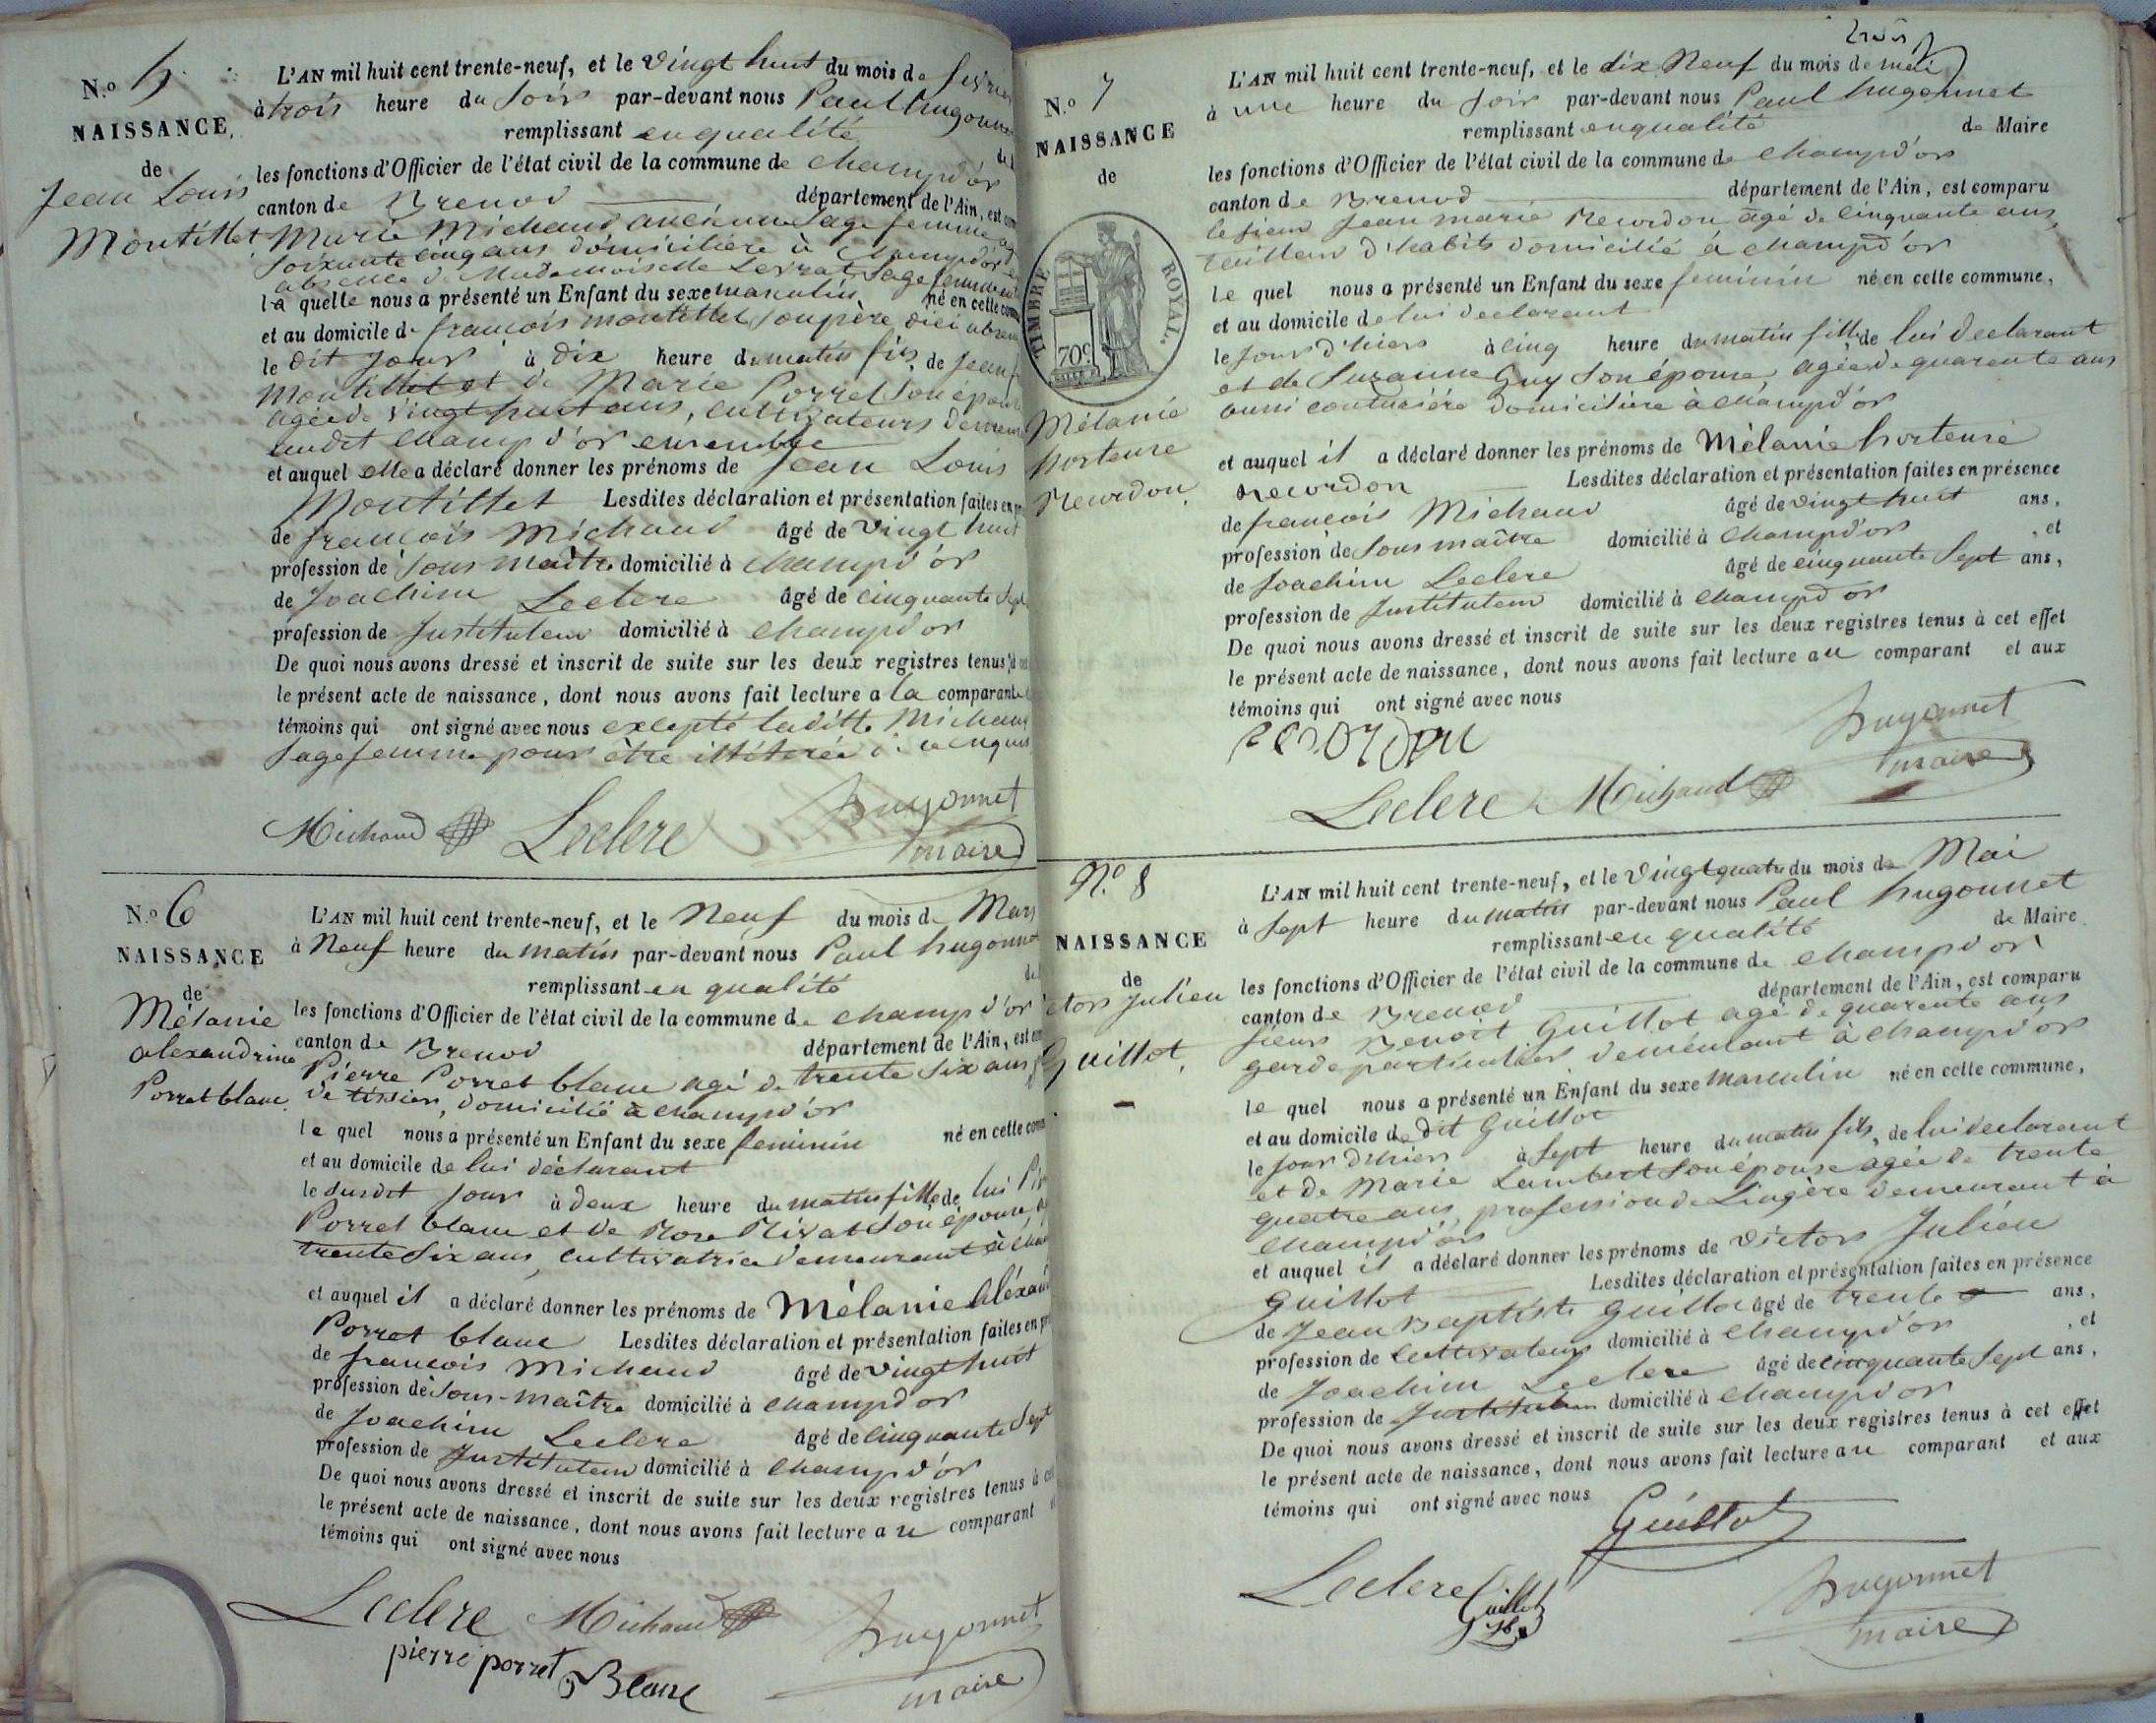 N.o 5
NAISSANCE,
de
Jean Louis
Montillet
L'AN mil huit cent trente-neuf, et le vingt huit du mois de fevrier
à trois heure du soir par-devant nous Paul hugonnet
remplissant en qualité
les fonctions d'Officier de l'état civil de la commune de champd'or
canton de Brenod département de l'Ain, est
Marie Michaud ancienne sage femme
soixante cinq ans domicilière à Champd'or
absence de Mademoiselle Levrat sage femme
la quelle nous a présenté un Enfant du sexe masculin né en cette
et au domicile de francois montillet son père dici
le dit jour à dix heure du matin fils de jean
Montillet et de Marie Porret son
agée de vingt huit ans, cultivateurs
audit champ d'or ensemble
et auquel elle a déclaré donner les prénoms de Jean Louis
Montillet Lesdites déclaration et présentation faites en
de francois Michaud âgé de vingt huit
profession de sous maître domicilié à champd'or
de Joachim Leclere âgé de cinquante sept
profession de Instituteur domicilié à champd'or
De quoi nous avons dressé et inscrit de suite sur les deux registres tenus
le présent acte de naissance, dont nous avons fait lecture a la comparante
témoins qui ont signé avec nous excepté laditte Michaud
sage femme pour être illiterée
Michaud Leclere hugonnet
maire
N.o 6
NAISSANCE
de
Mélanie
alexandrine
Porret blanc
L'AN mil huit cent trente-neuf, et le Neuf du mois de Mars
à Neuf heure du matin par-devant nous Paul hugonnet
remplissant en qualité
les fonctions d'Officier de l'état civil de la commune de champ d'or
canton de Brenod département de l'Ain, est
Pierre Porret blanc agé de trente six ans
de tissier, domicilié à champd'or
le quel nous a présenté un Enfant du sexe feminin né en cette
et au domicile de lui déclarant
le susdit jour à deux heure du matin fille de lui
Porret blanc et de Rose Rivat son épouse
trente six ans, cultivatrice demeurant à
et auquel il a déclaré donner les prénoms de Mélanie
Porret blanc Lesdites déclaration et présentation faites en
de francois Michaud âgé de vingt huit
profession de sous-maître domicilié à champd'or
de Joachim Leclere âgé de cinquante sept
profession de Instituteur domicilié à champd'or
De quoi nous avons dressé et inscrit de suite sur les deux registres tenus à
le présent acte de naissance, dont nous avons fait lecture au comparant
témoins qui ont signé avec nous
Leclere Michaud hugonnet
pierre porret Blanc maire
N.o 7
NAISSANCE
de
TIMBRE ROYAL.
70c
Mélanie
hortense
Recordon.
L'AN mil huit cent trente-neuf, et le dix Neuf du mois de mai
à une heure du soir par-devant nous Paul hugonnet
remplissant en qualité de Maire
les fonctions d'Officier de l'état civil de la commune de champd'or
canton de Brenod département de l'Ain, est comparu
le sieur Jean marie Recordon agé de cinquante ans
tailleur d'habits domicilié à champd'or
le quel nous a présenté un Enfant du sexe feminin né en cette commune,
et au domicile de lui declarant
le jour d'hiers à cinq heure du matin fille de lui declarant
et de Suzanne Guy son épouse, agée de quarente ans
aussi couturière domicilière à champd'or
et auquel il a déclaré donner les prénoms de Mélanie hortense
Recordon Lesdites déclaration et présentation faites en présence
de francois Michaud âgé de vingt huit ans,
profession de sous maître domicilié à champd'or, et
de Joachim Leclere âgé de cinquante sept ans,
profession de Instituteur domicilié à champd'or
De quoi nous avons dressé et inscrit de suite sur les deux registres tenus à cet effet
le présent acte de naissance, dont nous avons fait lecture au comparant et aux
témoins qui ont signé avec nous
recordon hugonnet
Leclere Michaud maire
N.o 8
NAISSANCE
de
Julien
Guillot.
L'AN mil huit cent trente-neuf, et le vingt quatre du mois de Mai
à sept heure du matin par-devant nous Paul hugonnet
remplissant en qualité de Maire
les fonctions d'Officier de l'état civil de la commune de champd'or
canton de Brenod département de l'Ain, est comparu
sieur Benoit Guillot agé de quarente ans
garde particulier demeurant à champd'or
le quel nous a présenté un Enfant du sexe masculin né en cette commune,
et au domicile de dit Guillot
le jour d'hiers à sept heure du matin fils de lui declarant
et de Marie Lambert son épouse agée de trente
quatre ans, profession de Lingère demeurant à
champd'or
et auquel il a déclaré donner les prénoms de victor Julien
Guillot Lesdites déclaration et présentation faites en présence
de Jean Baptiste Guillot âgé de trente ans,
profession de cultivateur domicilié à champd'or, et
de Joachim Leclere âgé de cinquante sept ans,
profession de Instituteur domicilié à champd'or
De quoi nous avons dressé et inscrit de suite sur les deux registres tenus à cet effet
le présent acte de naissance, dont nous avons fait lecture au comparant et aux
témoins qui ont signé avec nous
Guillot
Leclere Guillot hugonnet
maire